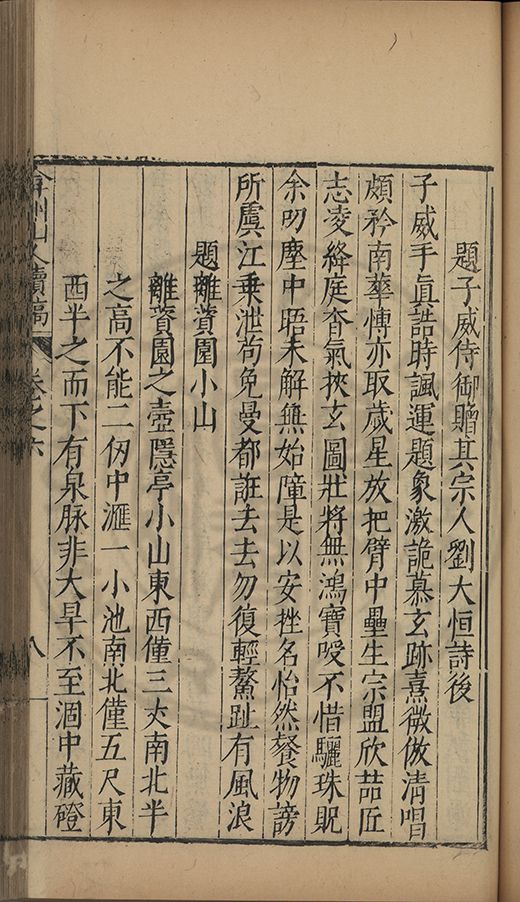 題子威侍御贈其宗人劉大恒詩後
子威手真誥時諷運題象激詭慕玄跡熹微倣清唱
頗矜南華愽亦取歳星放把臂中壘生宗盟欣喆匠
志凌絳庭杳氣挾玄圖壯將無鴻寶嗳不惜驪珠貺
余叨塵中晤未解無始障是以安挫名怡然餐物謗
所虞江乗泄茍免曼都誑去去勿復輕鰲趾有風浪
題離薋園小山
離薋園之壺隱亭小山東西僅三丈南北半
之高不能二仭中滙一小池南北僅五尺東
西半之而下有泉脉非大旱不至涸中藏磴
弇州山人續稿
卷之六
八